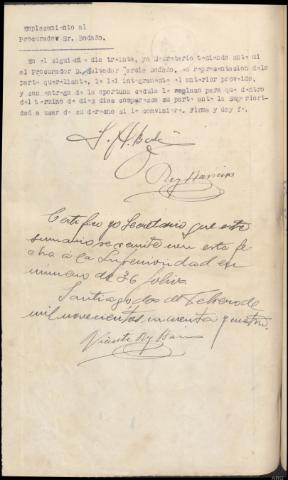 Emplazamiento al
Procurador Sr. Badaño.
En el siguiente dia treinta, yo Secretario teniendo ante mi
el Procurador D. Salvador Garcia Badaño, en representacion de la
parte querellante, le lei integramente el anterior proveido,
y con entrega de la oportuna cedula le emplazo para que dentro
del termino de diez dias comparezca su parte ante la Superiori-
dad a usar de su derecho si le conviniere. Firma y doy fe.
Rey
Certifico yo Secretario que este
sumario se remite en esta fe
cha a la Superioridad en
numero de 36 folios
Santiago dos de Febrero de
mil novecientos cincuenta y
Vicente Rey